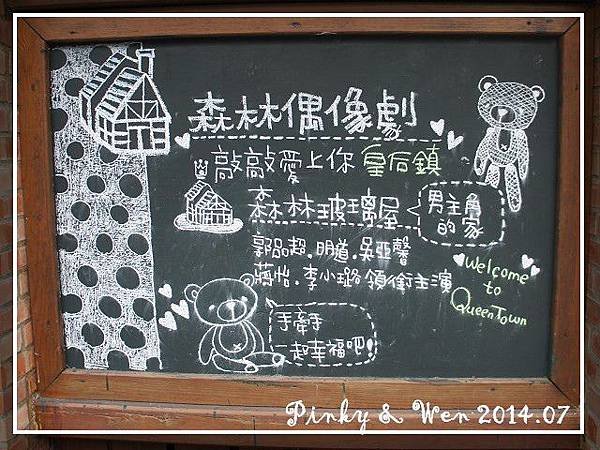 森林偶像劇
敲敲愛上你 皇后鎮
森林玻璃屋
男主角
的家
郭品超.明道.吳亞馨
蔣怡.李小璐領銜主演
Welcome
to
QueenTown
手牽手
一起幸福吧!
Pinky & Wen 2014.07